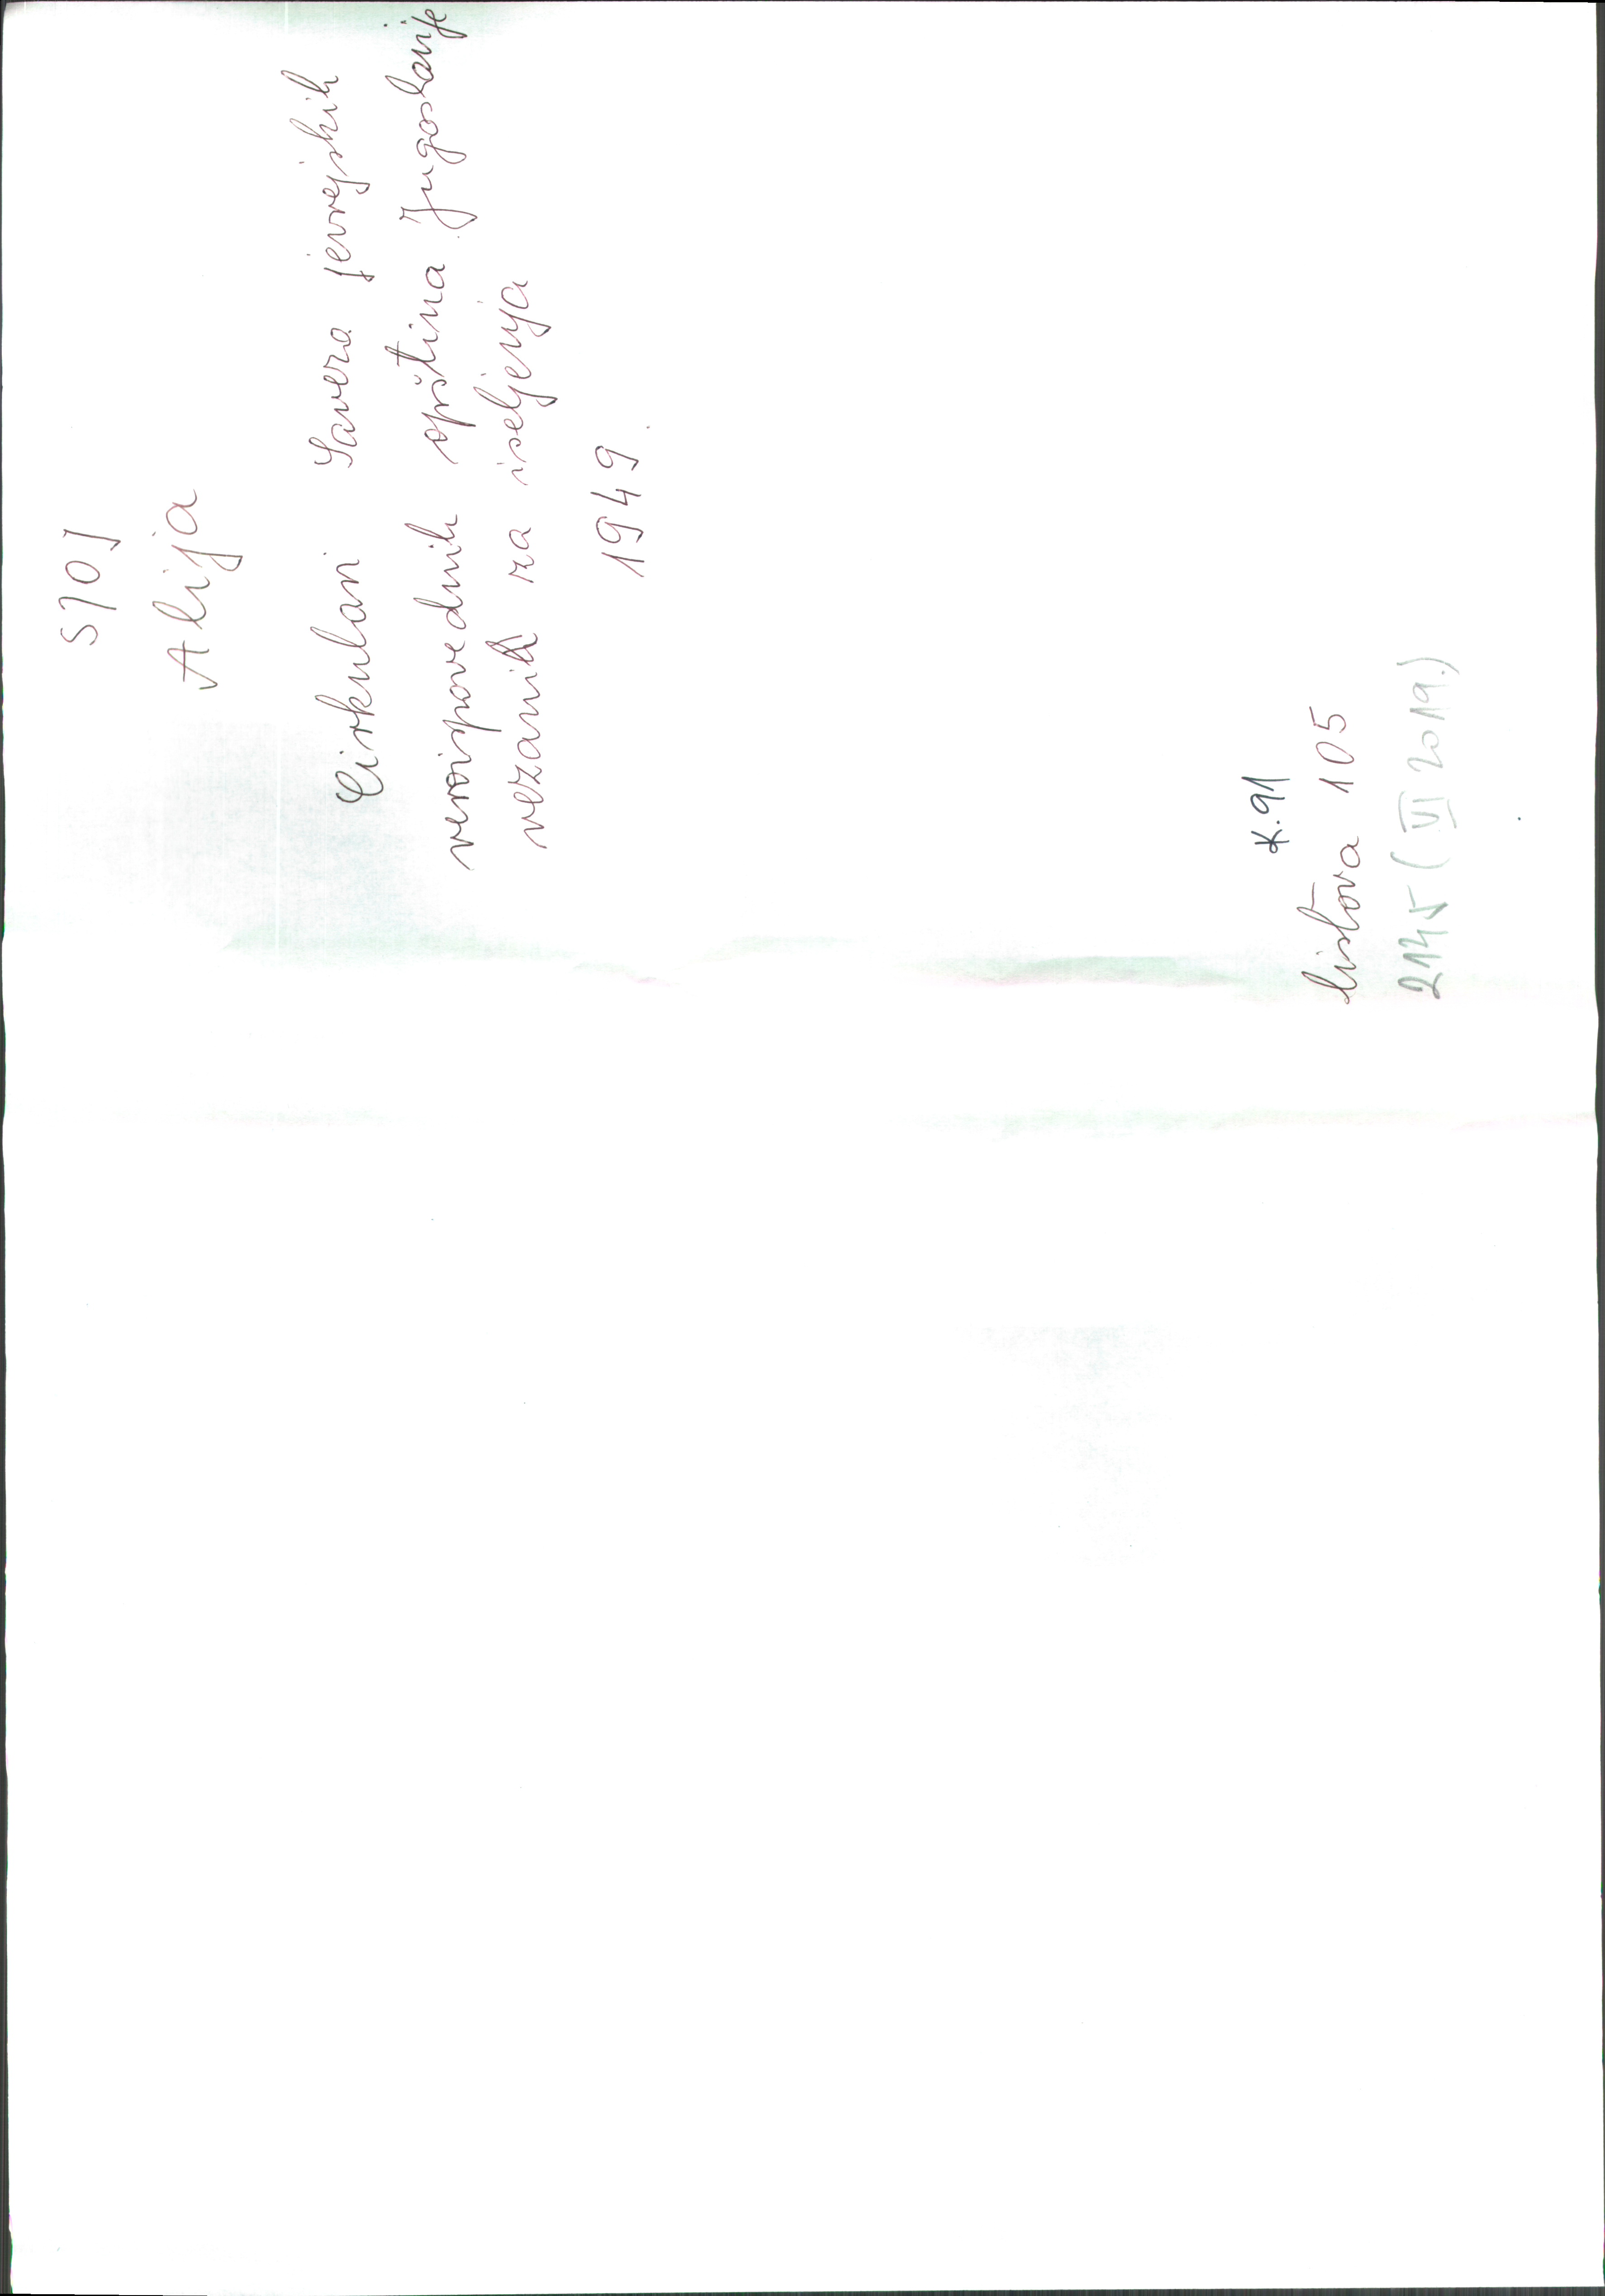 SJOJ
Alija
Cirkulari Saveza jevrejskih
veroispovednih opština Jugoslavije
vezanih za iseljenja
1949.
K.91
listova 105
2145 (VI 2019.)